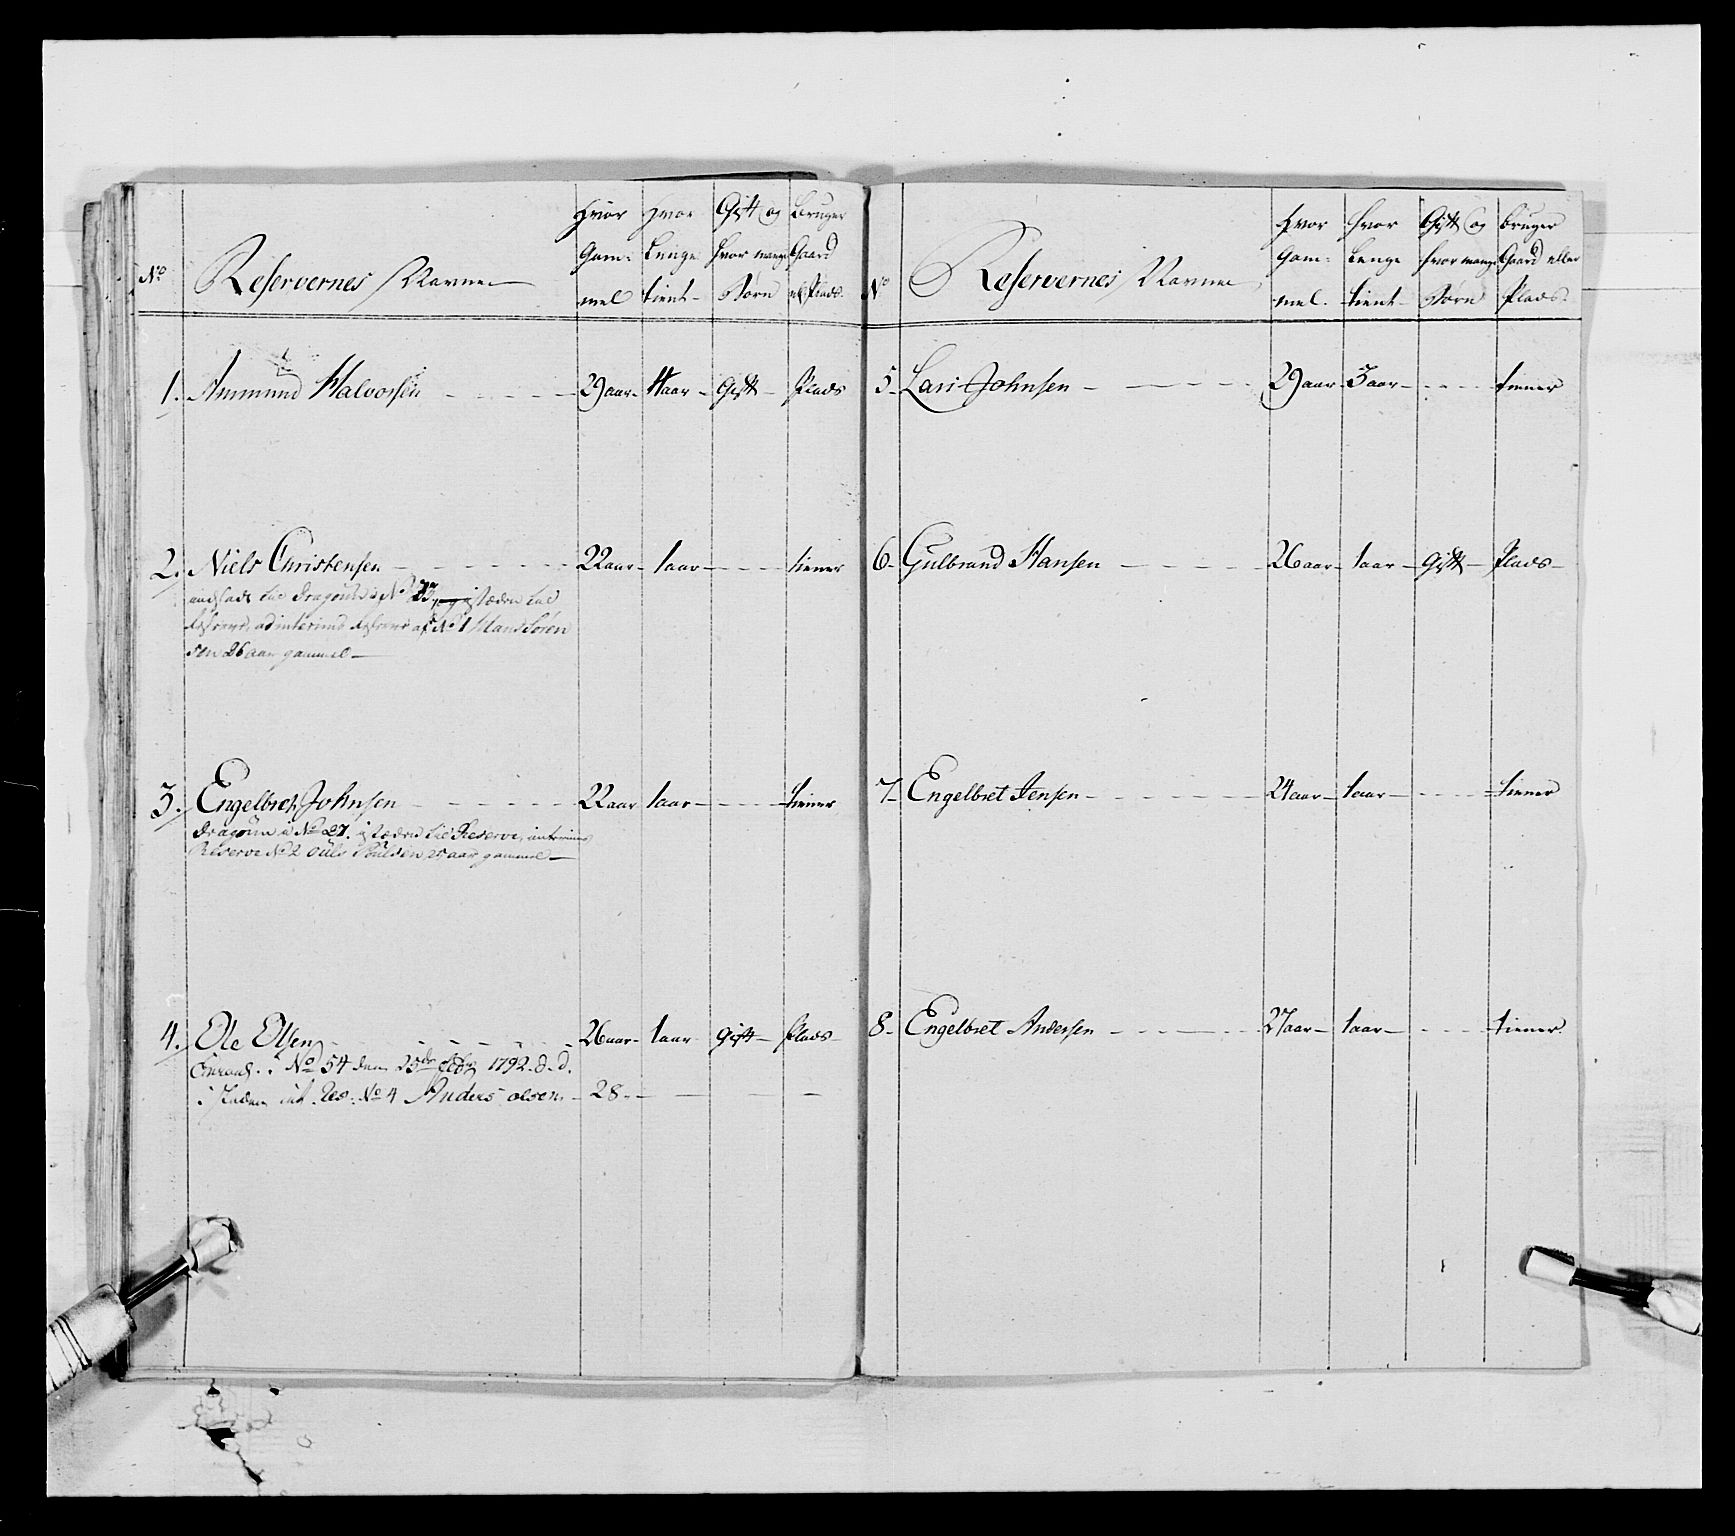 No
Reservernes Navne
Hvor Gam=mel
Hvor Lenge tient
Gift og hvor mange Børn
Bruger Gaard el. Plads
1. Ammund Halvorsen 29 aar 4 aar Gift Plads
2. Niels Christensen 22 aar 1 aar tiener
ansadt til Dragoun i No 33, istæden til
Reserve, ad interims Reserve af No 1 Hans Søren
sen 26 aar gammel
3. Engelbret Johnsen 22 aar 1 aar tiener
Dragoun i No 27. istæden til Reserve, interims
Reserve No 2 Ouls Poulsen 25 aar gammel
4. Ole Olsen 26 aar 1 aar gift Plads
i No 54 den 25de Febr 1792. d. d.
i Steden int. Res: No 4 Anders olsen 28.
No
Reservernes Navne
Hvor Gam=mel.
Hvor Lenge tient
Gift og hvor mange Børn
bruger Gaard eller Plads
5 Lars Johnsen 29 aar 3 aar tiener
6 Gulbrand Hansen 26 aar 1 aar Gift Plads
7 Engelbret Jensen 24 aar 1 aar tiener
8 Engelbret Andersen 27 aar 1 aar tiener